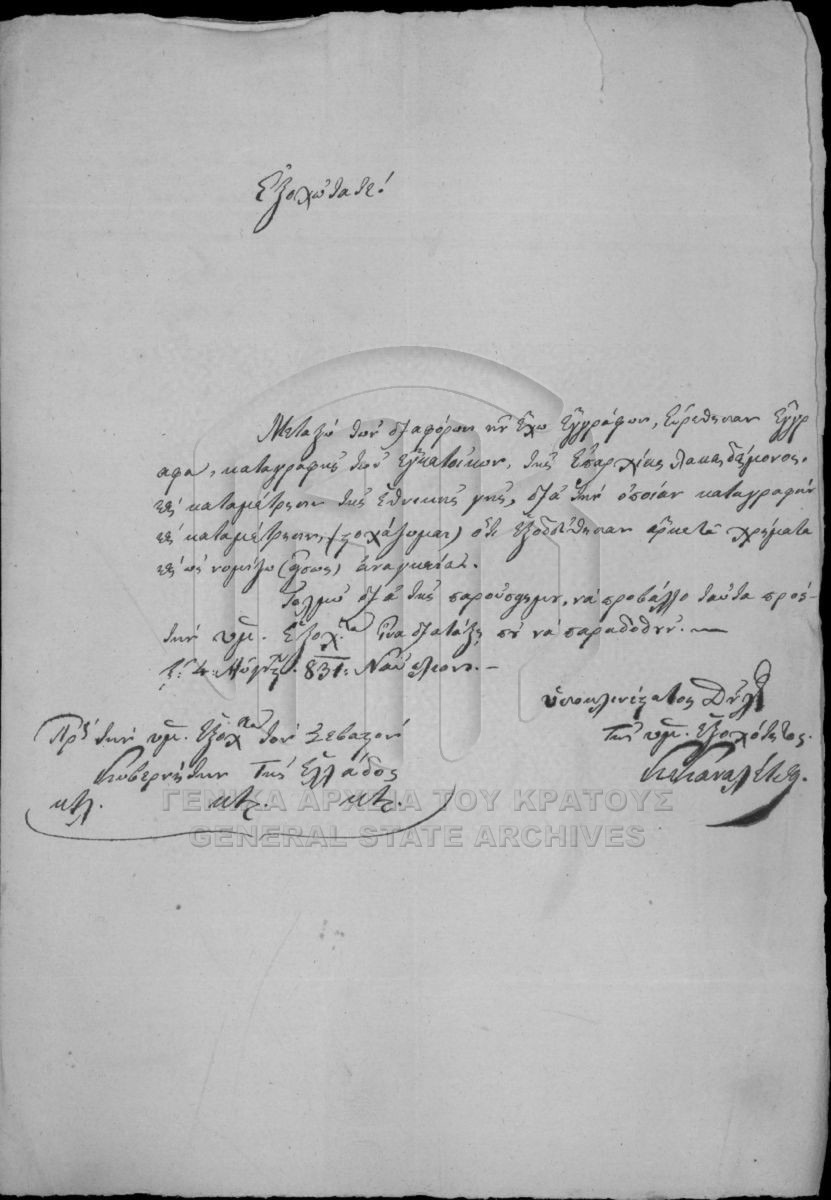 Ἐξοχώτατε!
Μεταξὺ τῶν διαφόρων ποῦ ἔχω ἐγγράφων, εὑρέθησαν ἔγγρ
αφα, καταγραφῆς τῶν ἐγκατοίκων, τῆς ἐπαρχίας Λακεδέμονος,
καὶ καταμέτρησιν τῆς ἐθνικῆς γῆς, διὰ τὴν ὁποίαν καταγραφὴν
καὶ καταμέτρησιν, (στοχάζωμαι) ὅτι ἐξοδεύθησαν ἀρκετὰ χρήματα
καὶ ὡς νομίζω (ἴσως) ἀναγκαῖαι.
Τολμῶ διὰ τῆς παρούσης μου, νὰ προβάλλο ταῦτα πρὸς
τὴν ὑμ. Ἐξοχ.τα ἵνα διατάξῃ ποῦ νὰ παραδοθοῦν.
τῇ 4: Αὐγούστ. 831: Ναύπλιον.
ὑποκλινέστατος δοῦλος
Τῆς ὑμ. Ἐξοχότητος.
Πρὸς τὴν ὑμ. Ἐξοχ.τα τὸν Σεβαστὸν
Κυβερνήτην Τῆς Ἑλλάδος
κτλ. κτλ. κτλ.
ΓΕΝΙΚΑ ΑΡΧΕΙΑ ΤΟΥ ΚΡΑΤΟΥΣ
GENERAL STATE ARCHIVES